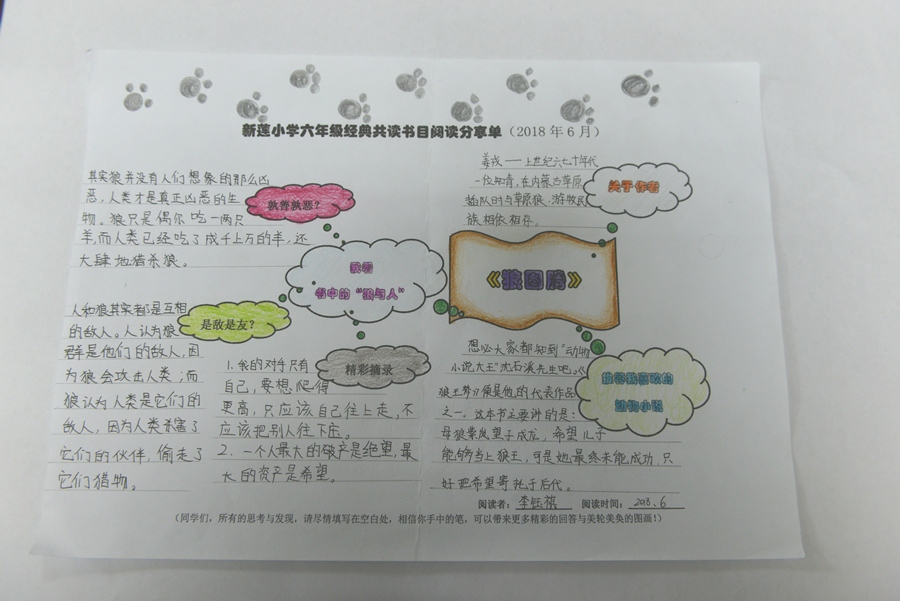 新莲小学六年级经典共读书目阅读分享单（2018年6月）
其实狼并没有人们想象的那么凶
恶，人类才是真正凶恶的生
物。狼只是偶尔吃一两只
羊，而人类已经吃了成千上万的羊，还
大肆地猎杀狼。
孰善孰恶？
姜戎——上世纪六七十年代
一位知青，在内蒙古草原
插队时与草原狼、游牧民
族相依相存。
关于作者
书中的“狼与人”
《狼图腾》
人和狼其实都是互相
的敌人。人认为狼
群是他们的敌人，因
为狼会攻击人类；而
狼认为人类是它们的
敌人，因为人类杀害了
它们的伙伴，偷走了
它们猎物。
是敌是友？
精彩摘录
1.我的对手只有
自己，要想爬得
更高，只应该自己往上走，不
应该把别人往下压。
2.一个人最大的破产是绝望，最
大的资产是希望。
想必大家都知到“动物
小说大王”沈石溪先生吧。《
狼王梦》便是他的代表作品
之一。这本书主要讲的是：
母狼紫岚望子成龙，希望儿子
能够当上狼王，可是她最终未能成功，只
好把希望寄托于后代。
动物小说
阅读者：李钰祺 阅读时间：2018.6
（同学们，所有的思考与发现，请尽情填写在空白处，相信你手中的笔，可以带来更多精彩的回答与美轮美奂的图画！）